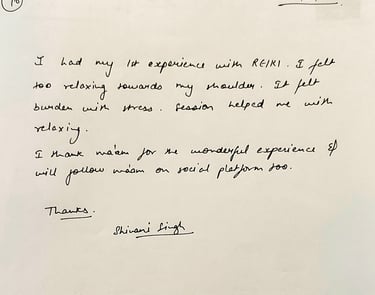 I had my 1st experience with REIKI. I felt
too relaxing towards my shoulder. It felt
burden with stress. Session helped me with
relaxing.
I thank ma'am for the wonderful experience &
will follow ma'am on social platform too.
Thanks.
Shivani Singh